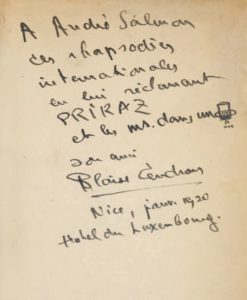 A André Salmon
ces rhapsodies
internationales
en lui réclamant
PRIKAZ
et les ms. dans un
son ami
Blaise Cendrars
Nice, janv. 1920
Hotel du Luxembourg.